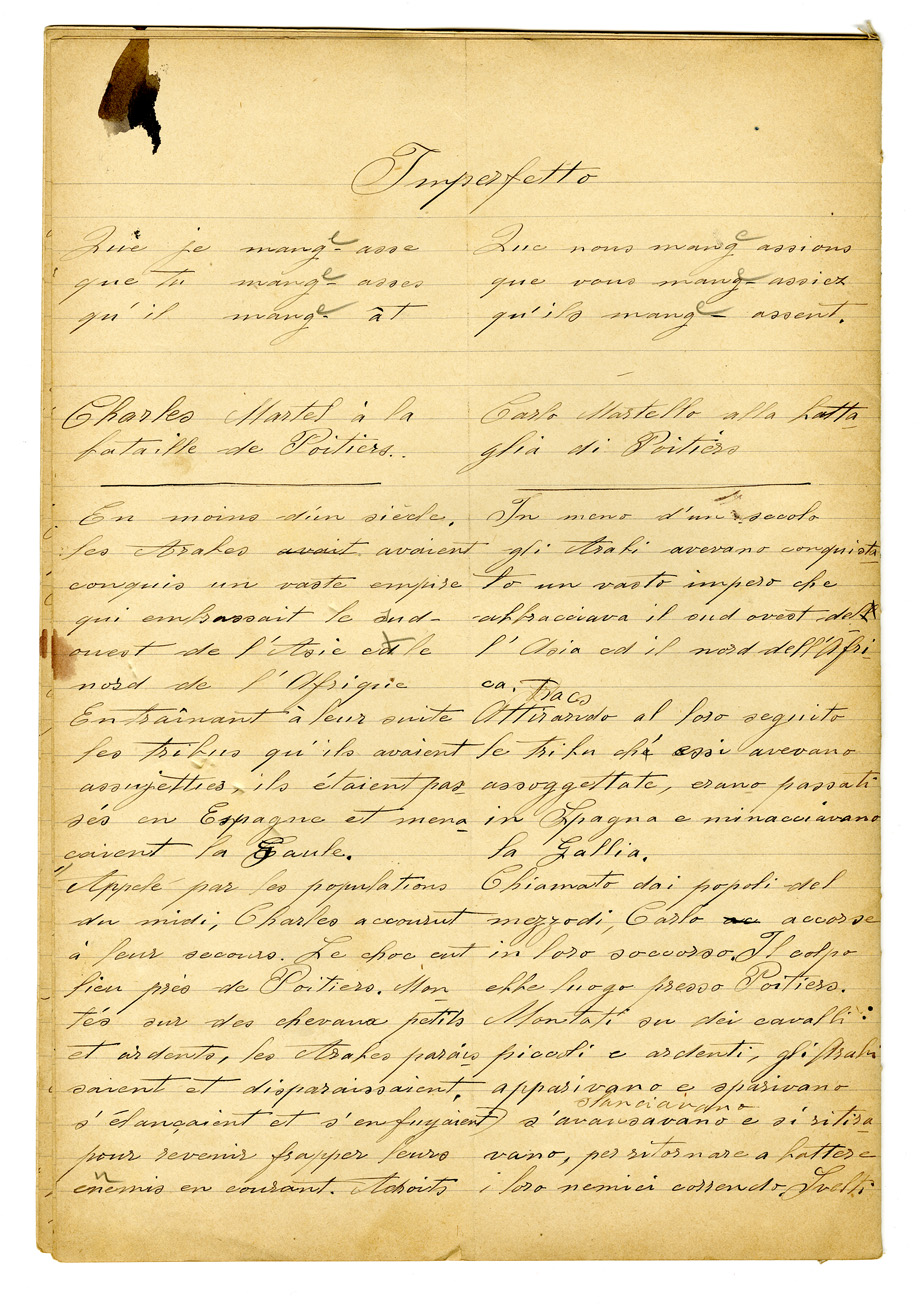 Imperfetto
Que je mangeasse
que tu mangeasses
qu'il mangeât
Que nous mangeassions
que vous mangeassiez
qu'ils mangeassent.
Charles Martel à la
bataille de Poitiers.
En moins d'un siècle,
les Arabes avait avaient
conquis un vaste empire
qui embrassait le sud-
ouest de l'Asie et le
nord de l'Afrique
Entraînant à leur suite
les tribus qu'ils avaient
assujetties, ils étaient pas-
sés en Espagne et mena-
çaient la Gaule.
Appelé par les populations
du midi, Charles accourut
à leur secours. Le choc eut
lieu près de Poitiers. Mon
tés sur des chevaux petits
et ardents, les Arabes parais
saient et disparaissaient,
s'élançaient et s'enfuyaient
pour revenir frapper leurs
enemis en courant. Adroits
Carlo Martello alla batta-
glia di Poitiers
In meno d'un secolo
gli Arabi avevano conquista-
to un vasto impero che
abbracciava il sud ovest del
l'Asia ed il nord dell'Afri-
ca.
Attirando al loro seguito
le tribu che essi avevano
assoggettate, erano passati
in Spagna e minacciavano
la Gallia.
Chiamato dai popoli del
mezzodi, Carlo ac accorse
in loro soccorso. Il colpo
ebbe luogo presso Poitiers.
Montati su dei cavalli
piccoli e ardenti, gli Arabi
apparivano e sparivano
slanciavano
s'avansavano e si ritira-
vano, per ritornare a battere
i loro nemici correndo. Svelti